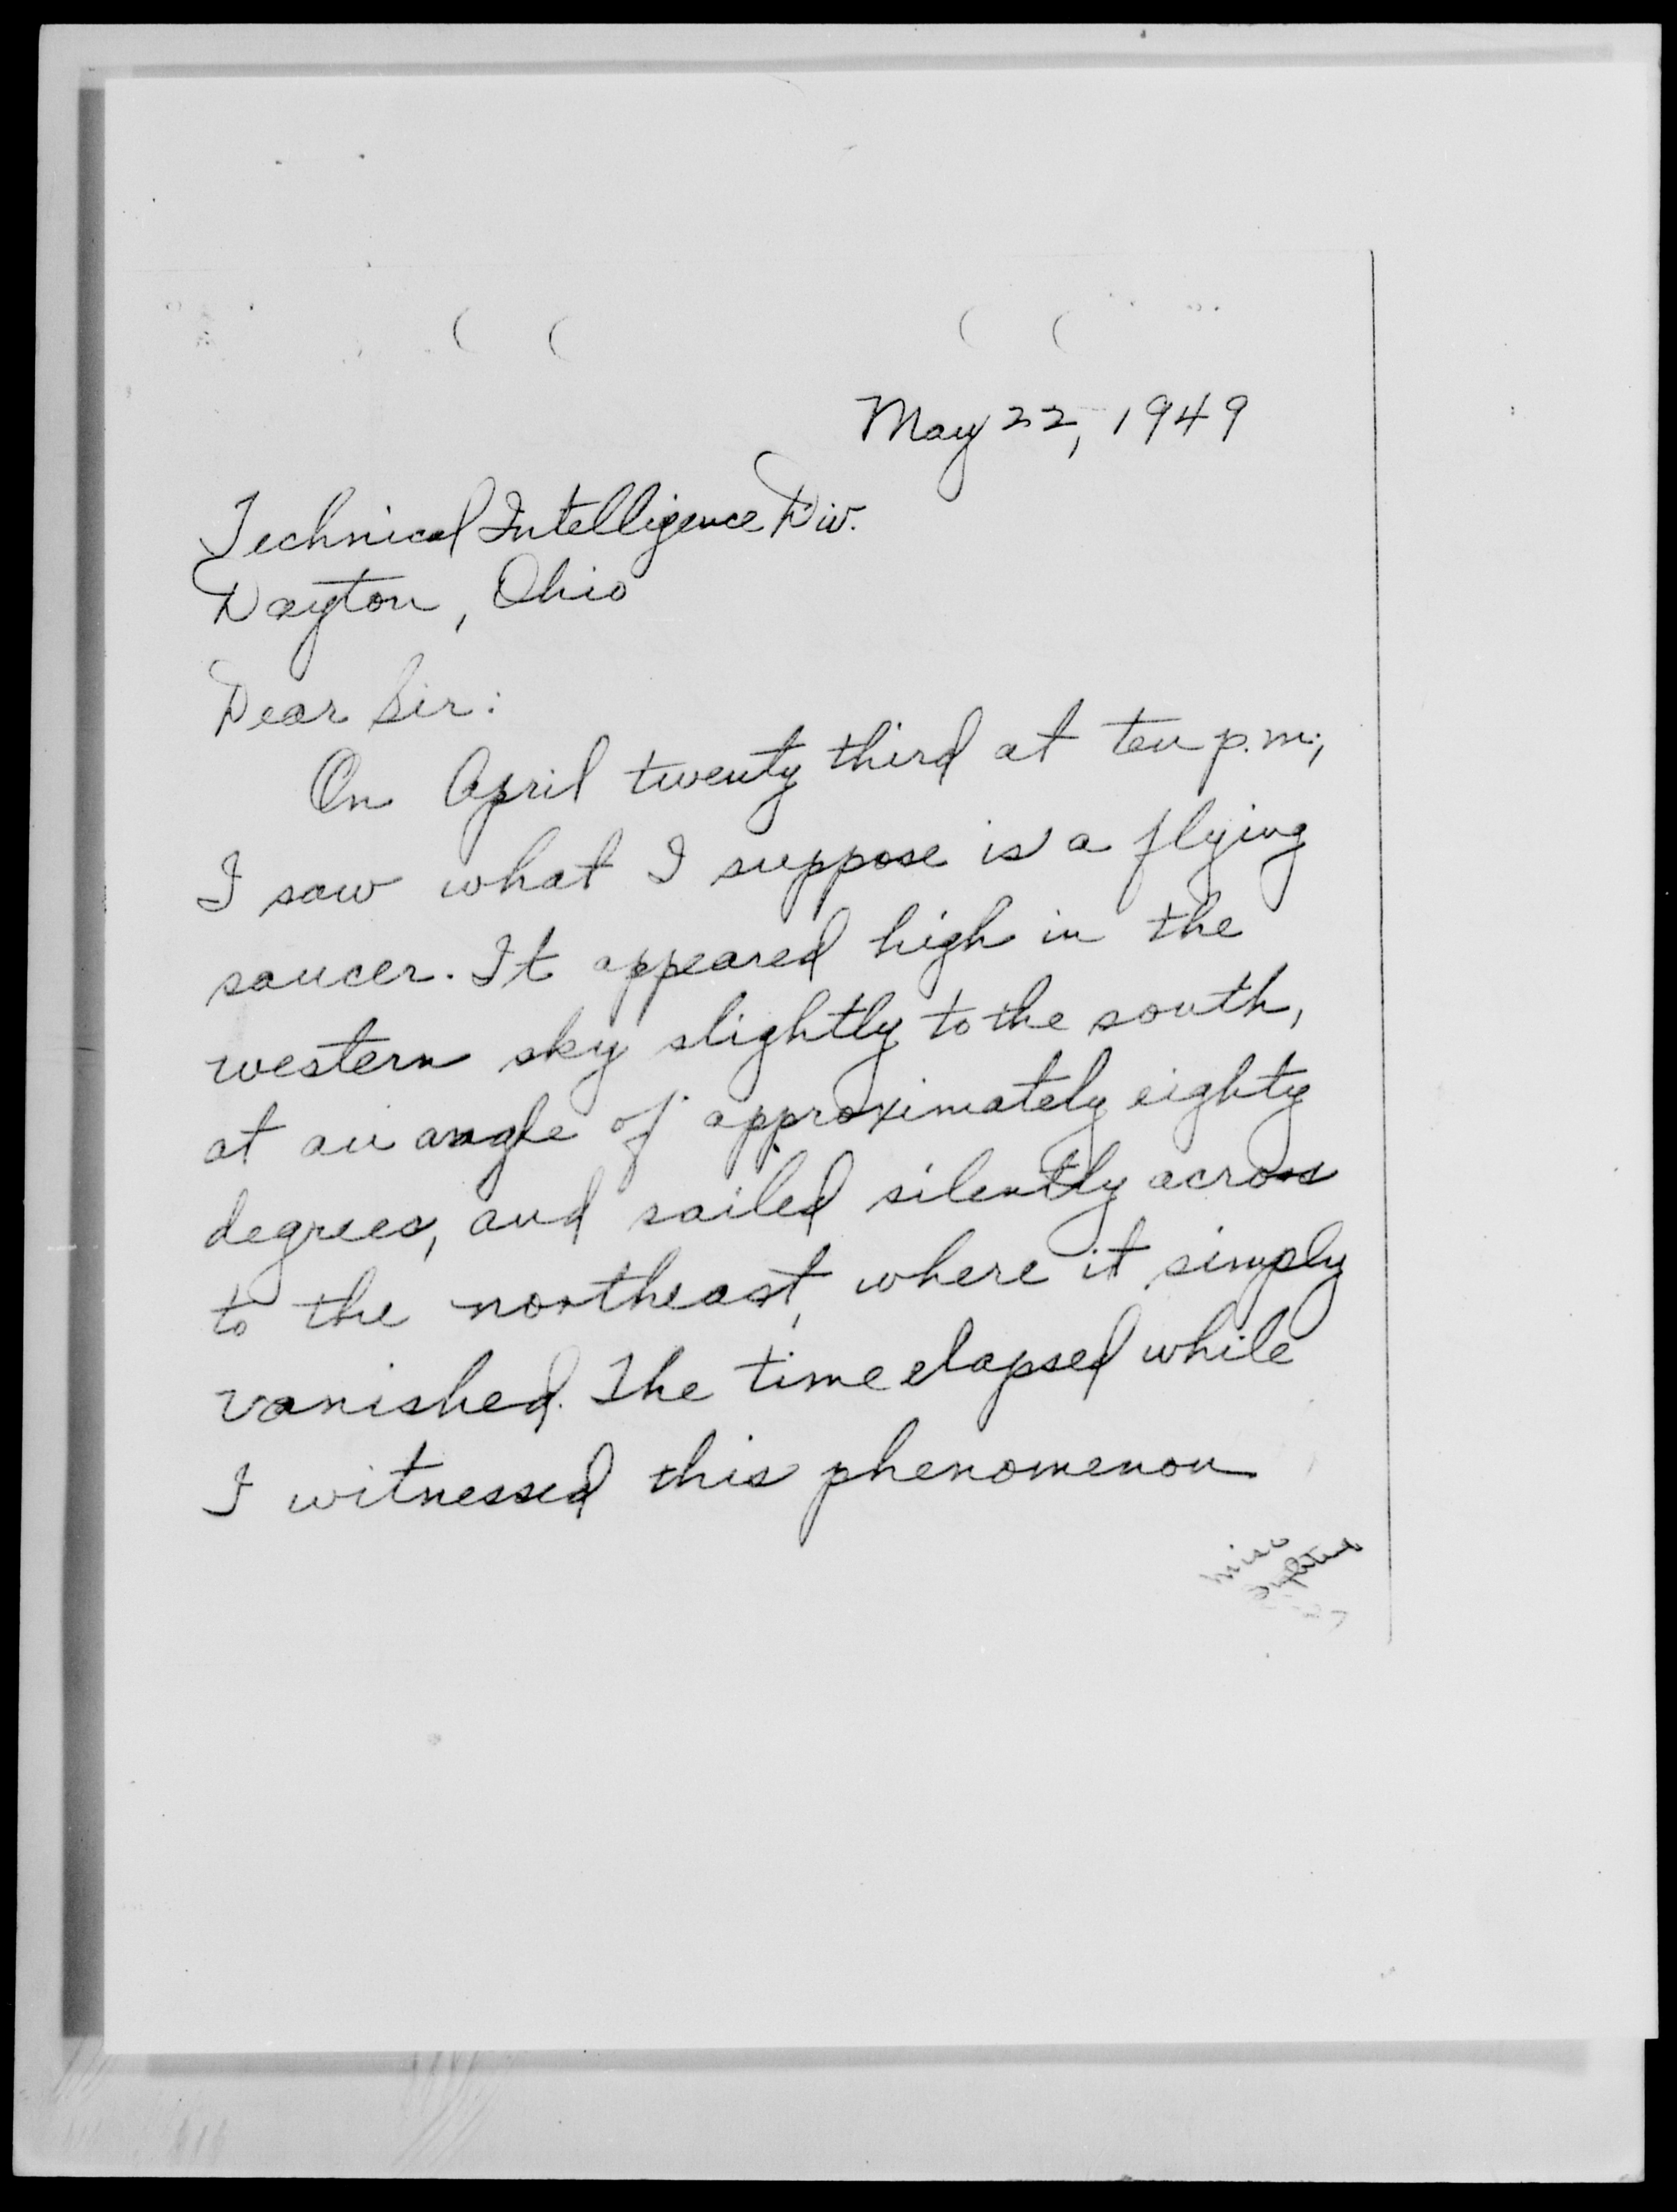 May 22, 1949
Technical Intelligence Div.
Dayton, Ohio
Dear Sir:
On April twenty third at ten p.m.,
I saw what I suppose is a flying
saucer. It appeared high in the
western sky slightly to the south,
at an angle of approximately eighty
degrees, and sailed silently across
to the northeast, where it simply
vanished. The time elapsed while
I witnessed this phenomenon
misc